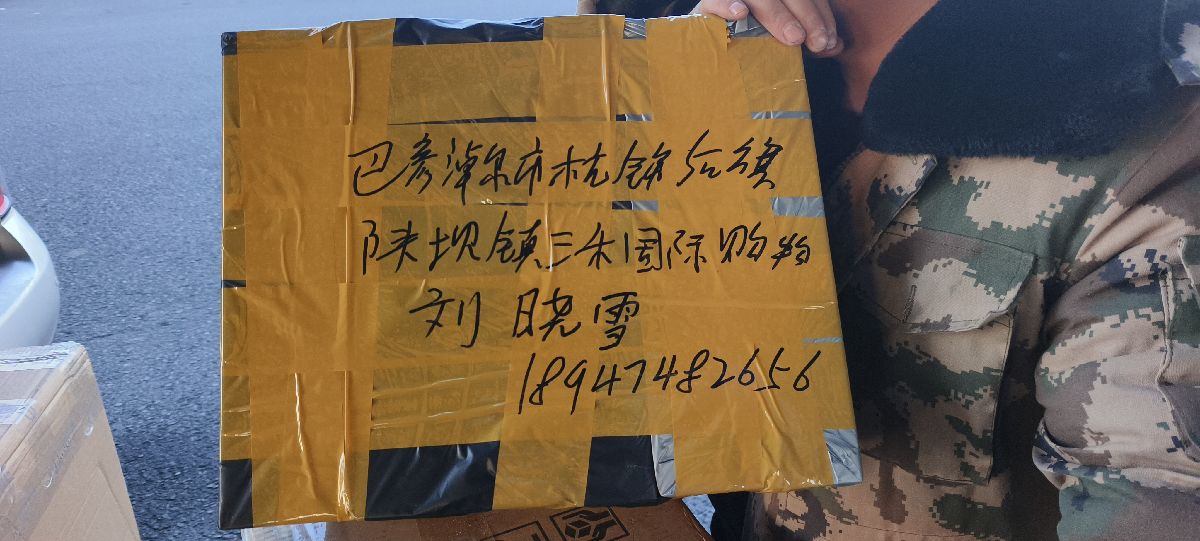 巴彦淖尔市杭锦后旗
陕坝镇三禾国际购物
刘晓雪
18947482656